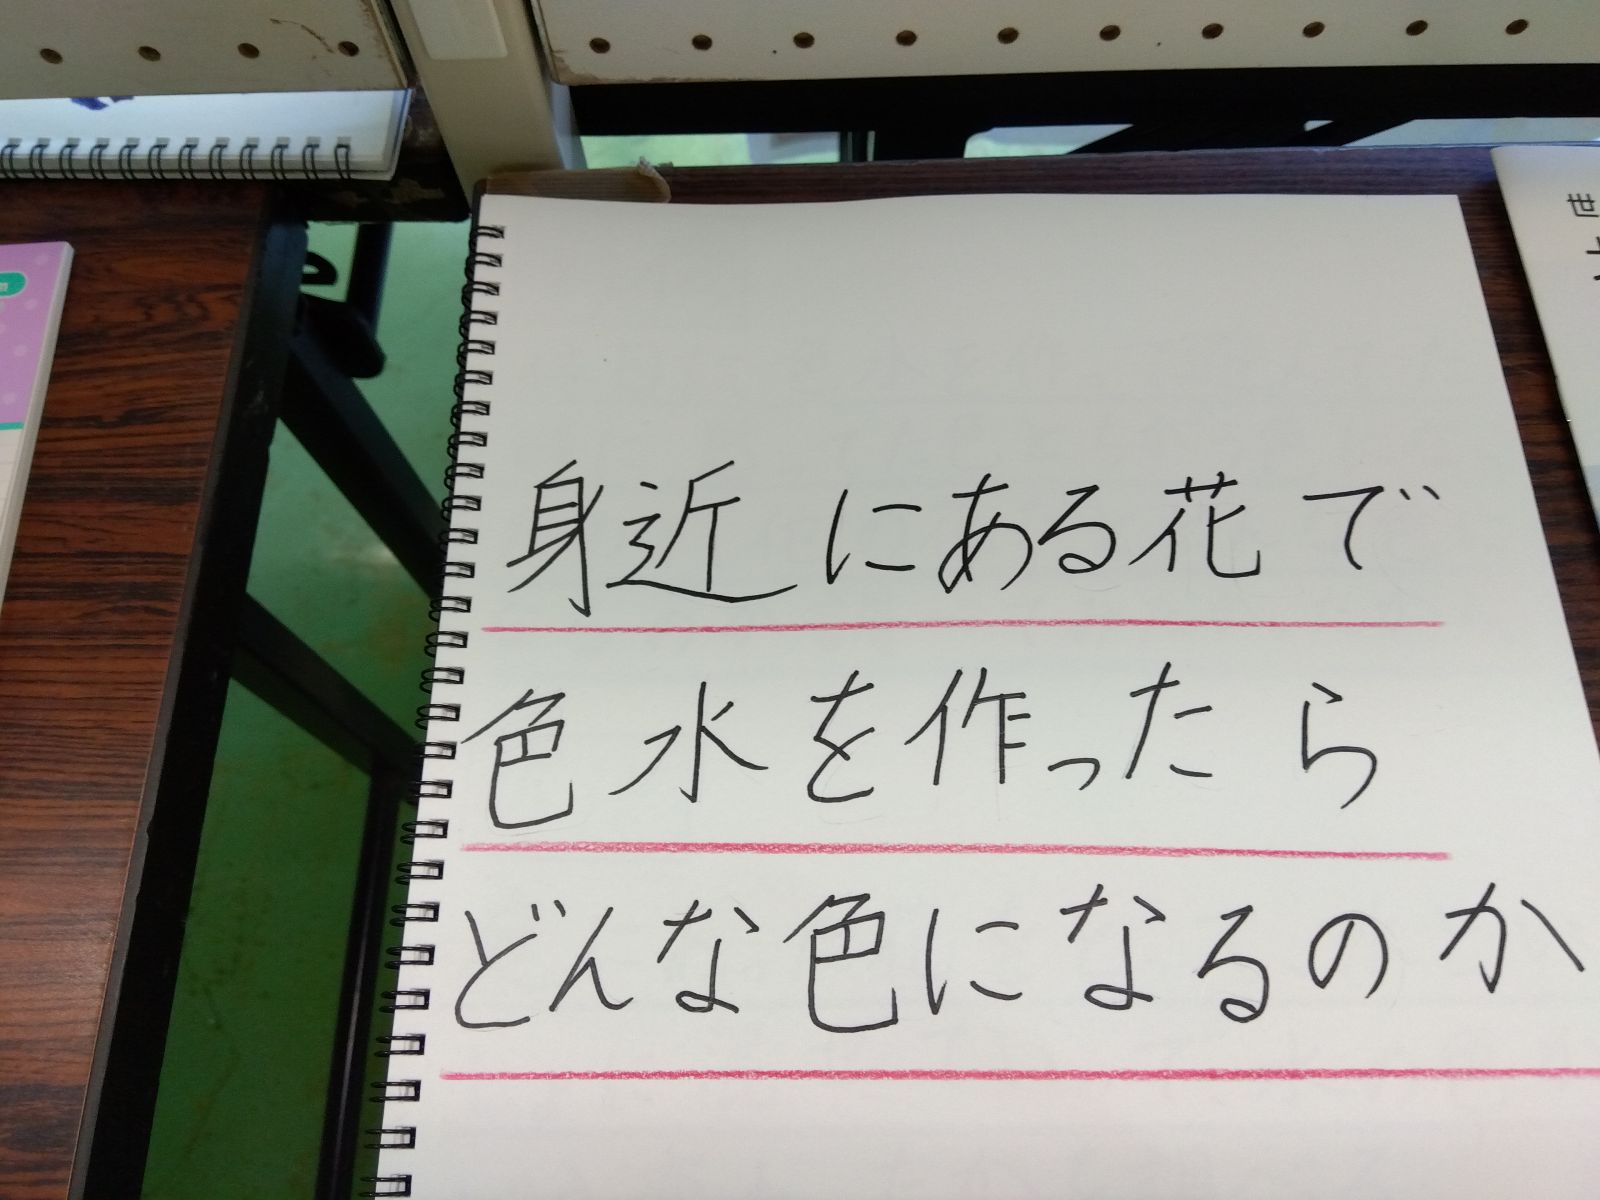 身近にある花で
色水を作ったら
どんな色になるのか